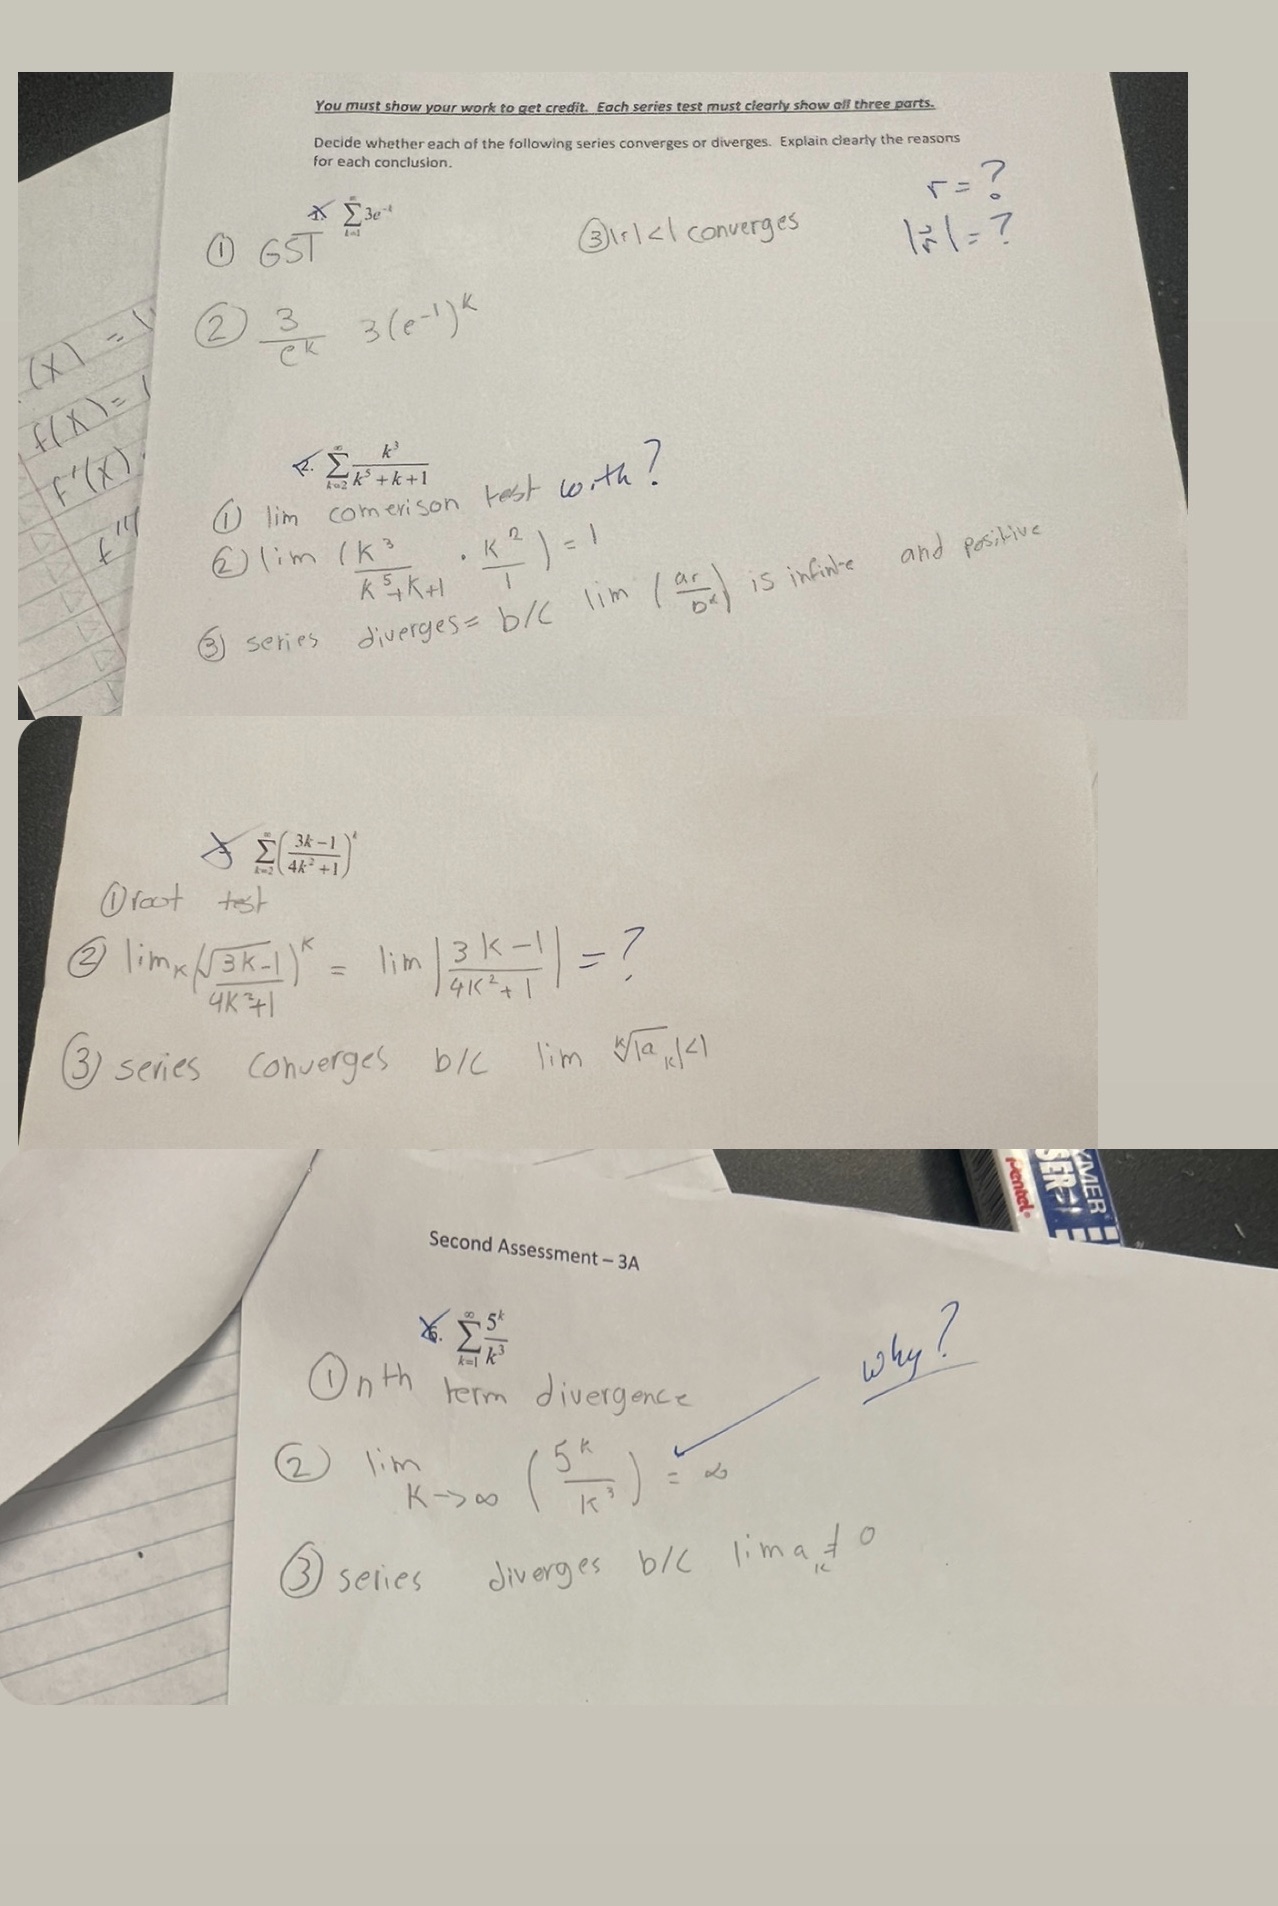 You must show your work to get credit. Each series test must clearly show all three parts.
Decide whether each of the following series converges or diverges. Explain clearly the reasons
for each conclusion.
r = ?
|r| = ?
1. ∞ Σ k=1 3e^-k
① GST
③ |r|<1 converges
② 3/e^k 3(e^-1)^k
2. ∞ Σ k=2 k^3/(k^5+k+1)
① lim comerison test with?
② lim (k^3/(k^5+k+1) · k^2/1) = 1
③ series diverges = b/c lim (ar/bk) is infinite and positive
(x) =
f(x) =
f''(x)
f'''
∞ Σ k=2 ((3k-1)/(4k^2+1))^k
① root test
② lim k√((3k-1)/(4k^2+1))^k = lim |(3k-1)/(4k^2+1)| = ?
③ series converges b/c lim k√|a_k|<1
YMER
SER
Pentel
Second Assessment – 3A
6. ∞ Σ k=1 5^k/k^3
why?
① nth term divergence
② lim k->∞ (5^k/k^3) = ∞
③ series diverges b/c lim a_k ≠ 0